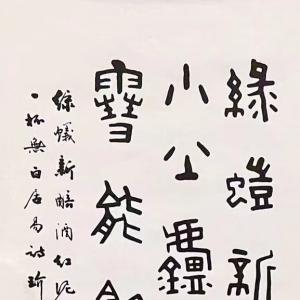 綠螘新
小火
雪能飲
綠蟻新醅酒紅泥
一杯無白居易詩